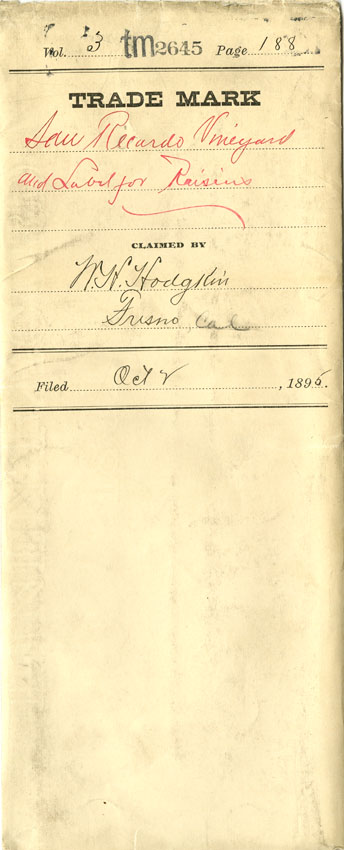 Vol. 3 tm2645 Page 188
TRADE MARK
San Ricardo Vineyard
and Label for Raisins
CLAIMED BY
W.H. Hodgkin
Fresno, Cal
Filed Oct 2, 1895.